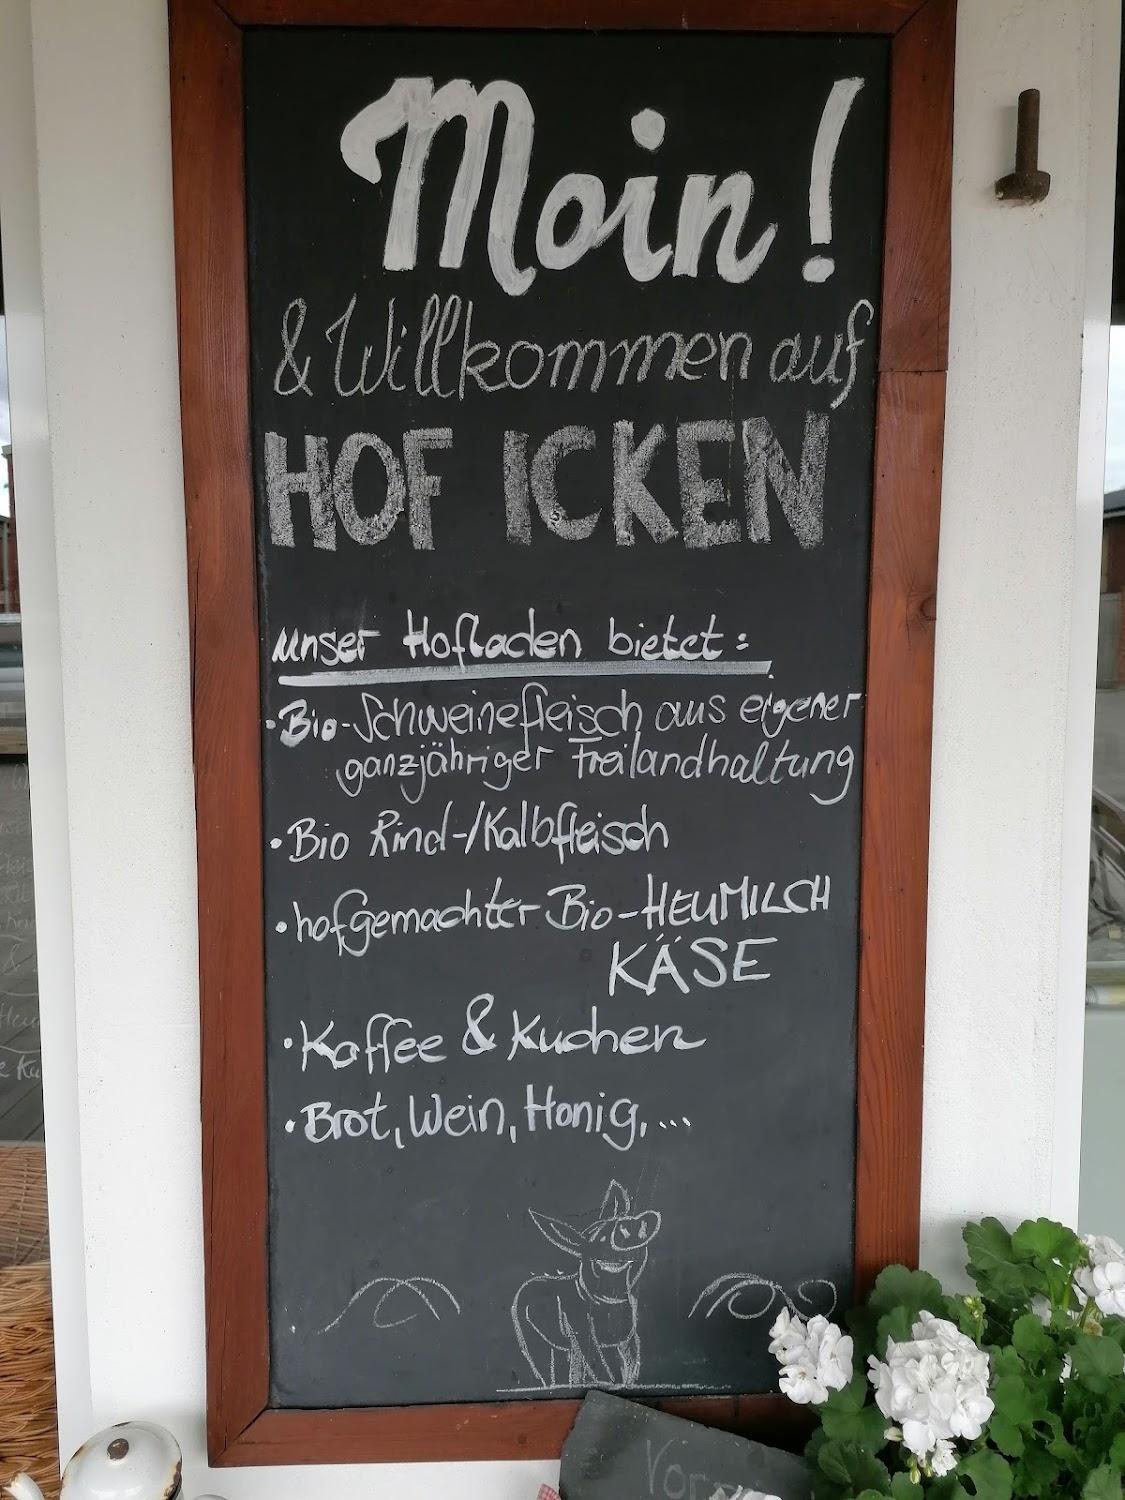 Moin!
& Willkommen auf
HOF ICKEN
unser Hofladen bietet:
• Bio-Schweinefleisch aus eigener
ganzjähriger Freilandhaltung
• Bio Rind-/Kalbfleisch
• hofgemachter Bio-HEUMILCH
KÄSE
• Kaffee & Kuchen
• Brot, Wein, Honig, ...